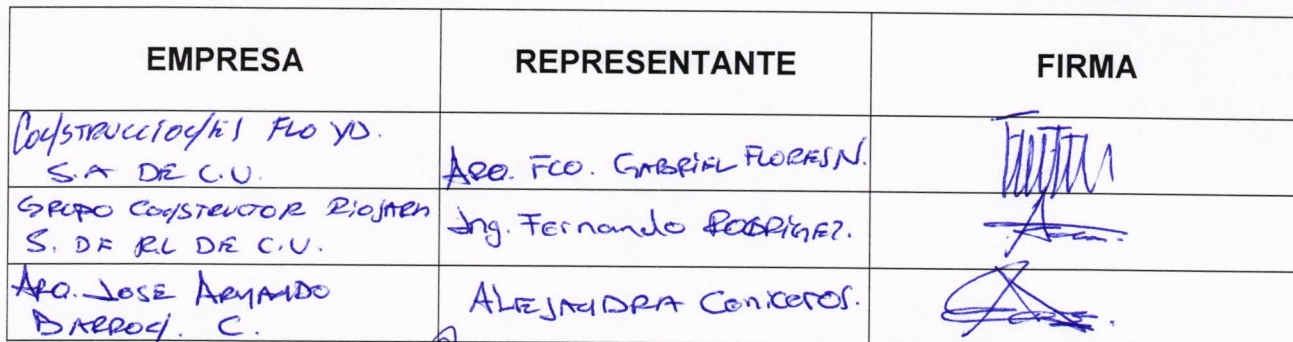 EMPRESA REPRESENTANTE FIRMA
CONSTRUCCIONES FLOYD.
S.A DE C.V. ARQ. FCO. GABRIEL FLORES N.
GRUPO CONSTRUCTOR RIOJARA
S. DE RL DE C.V. Ing. Fernando RODRIGEZ.
ARQ. JOSE ARMANDO
BARRON. C. ALEJANDRA Coniceros.